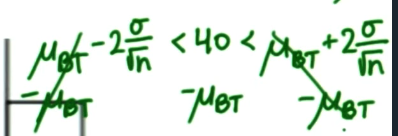 μ_BT - 2 σ/√n < 40 < μ_BT + 2 σ/√n
- μ_BT - μ_BT - μ_BT